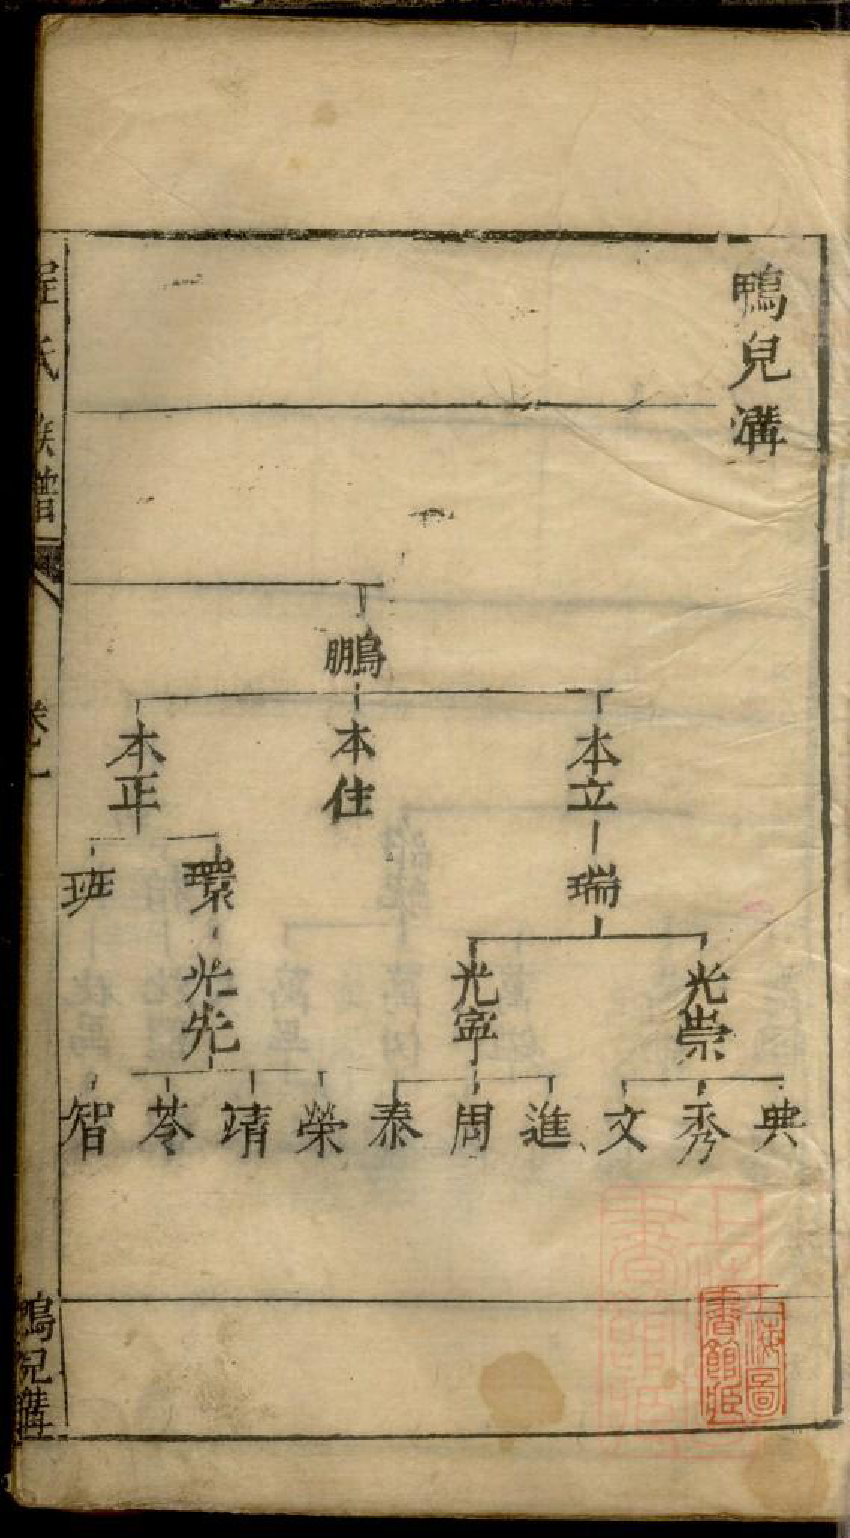 鴨兒溝
鵬
本立
本住
本正
瑞
環
班
光崇
光寧
光先
典
秀
文
進
周
泰
榮
靖
苓
智
程氏族譜
卷之一
鴨兒溝
上海圖書館藏